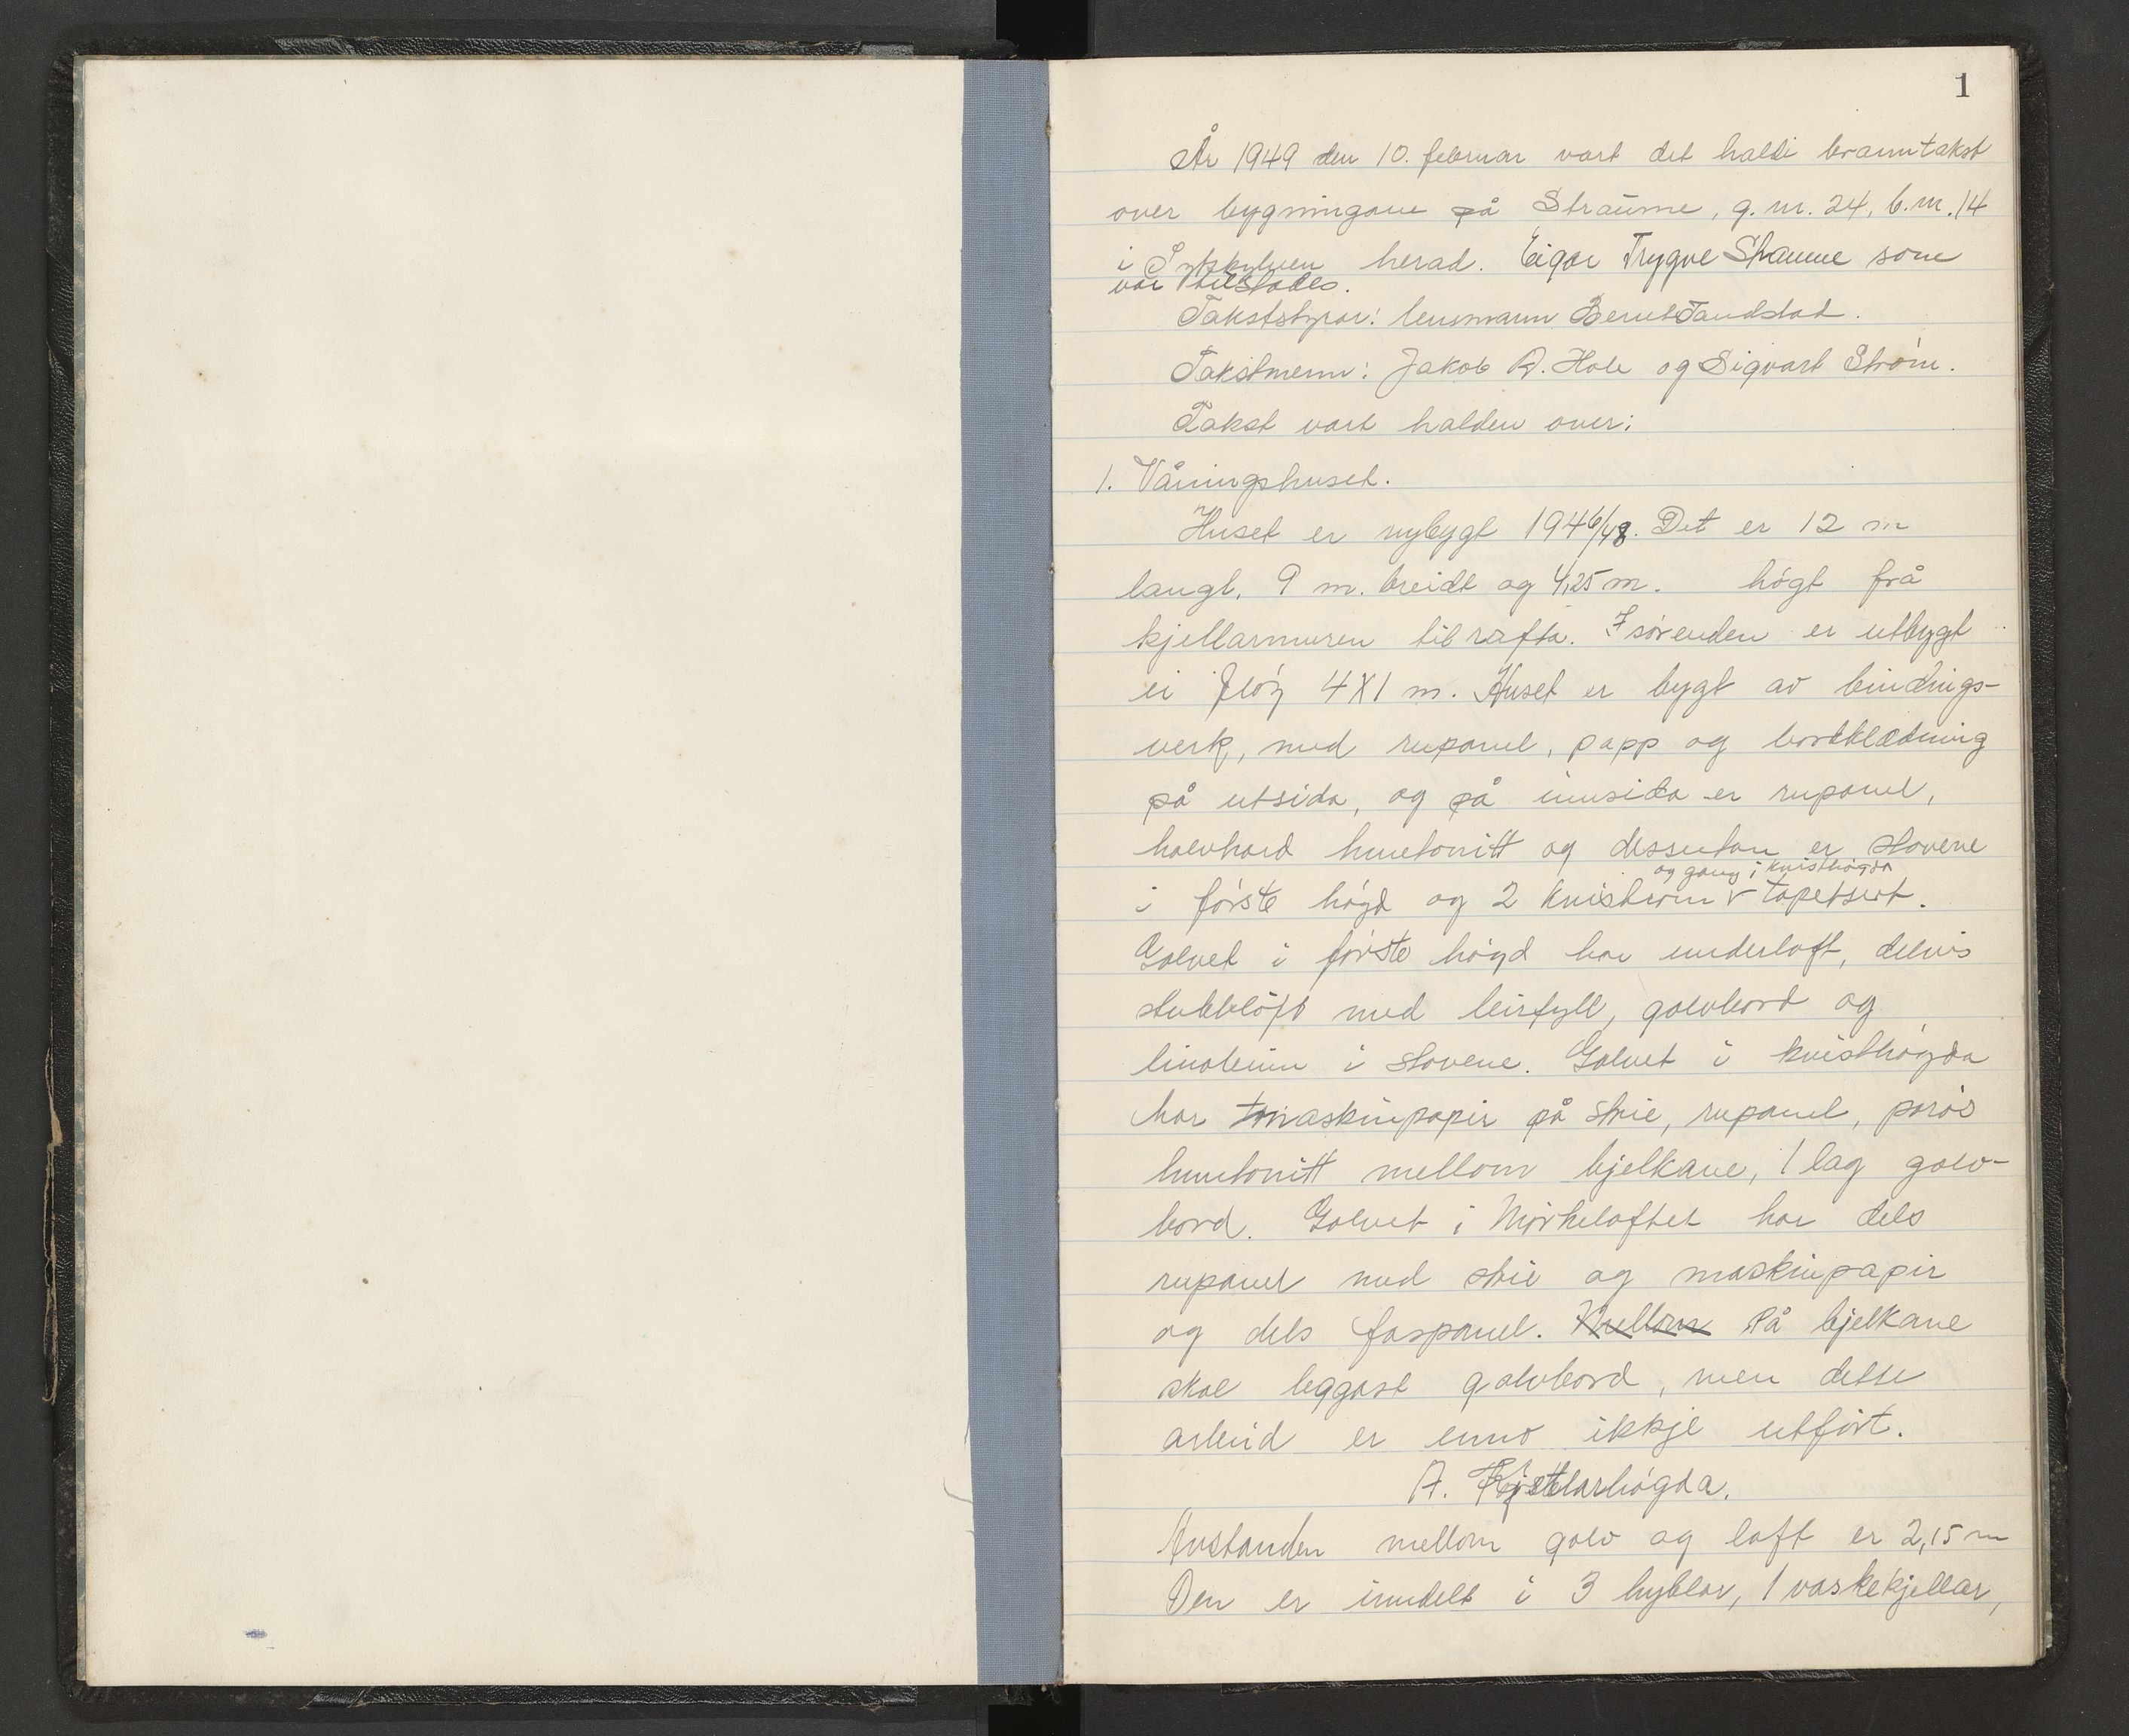 1
År 1949 den 10. februar vart det haldi branntakst
over bygningane på Straume, g.nr. 24, b.nr. 14
i Sykkylven herad. Eigar Trygve Straume som
var tilstades.
Takststyrar: lensmann Bernt Tandstad.
Takstmenn: Jakob A. Hole og Sigvart Strøm.
Takst vart halden over:
1. Våningshuset.
Huset er nybygt 1946/48. Det er 12 m
langt, 9 m. breidt og 4,25 m. högt frå
kjellarmuren til rafta. I sörenden er utbygt
ei flöy 4X1 m. Huset er bygt av bindings-
verk, med rupanel, papp og bordklædning
på utsida, og på innsida er rupanel,
halvhard huntonitt og dessutan er stovene
og gang i kvisthögda
i förste högd og 2 kvistrom tapetsert.
Golvet i förste högd har underloft, delvis
stubbloft med leirfyll, golvbord og
linoleum i stovene. Golvet i kvisthögda
har maskinpapir på strie, rupanel, porös
huntonitt mellom bjelkane, 1 lag golv-
bord. Golvet i Mörkeloftet har dels
rupanel med strie og maskinpapir
og dels faspanel. Mellom På bjelkane
skal leggast golvbord, men dette
arbeid er enno ikkje utfört.
A. Kjellarhögda.
Avstanden mellom golv og loft er 2,15 m
Den er inndelt i 3 hyblar, 1 vaskekjellar,